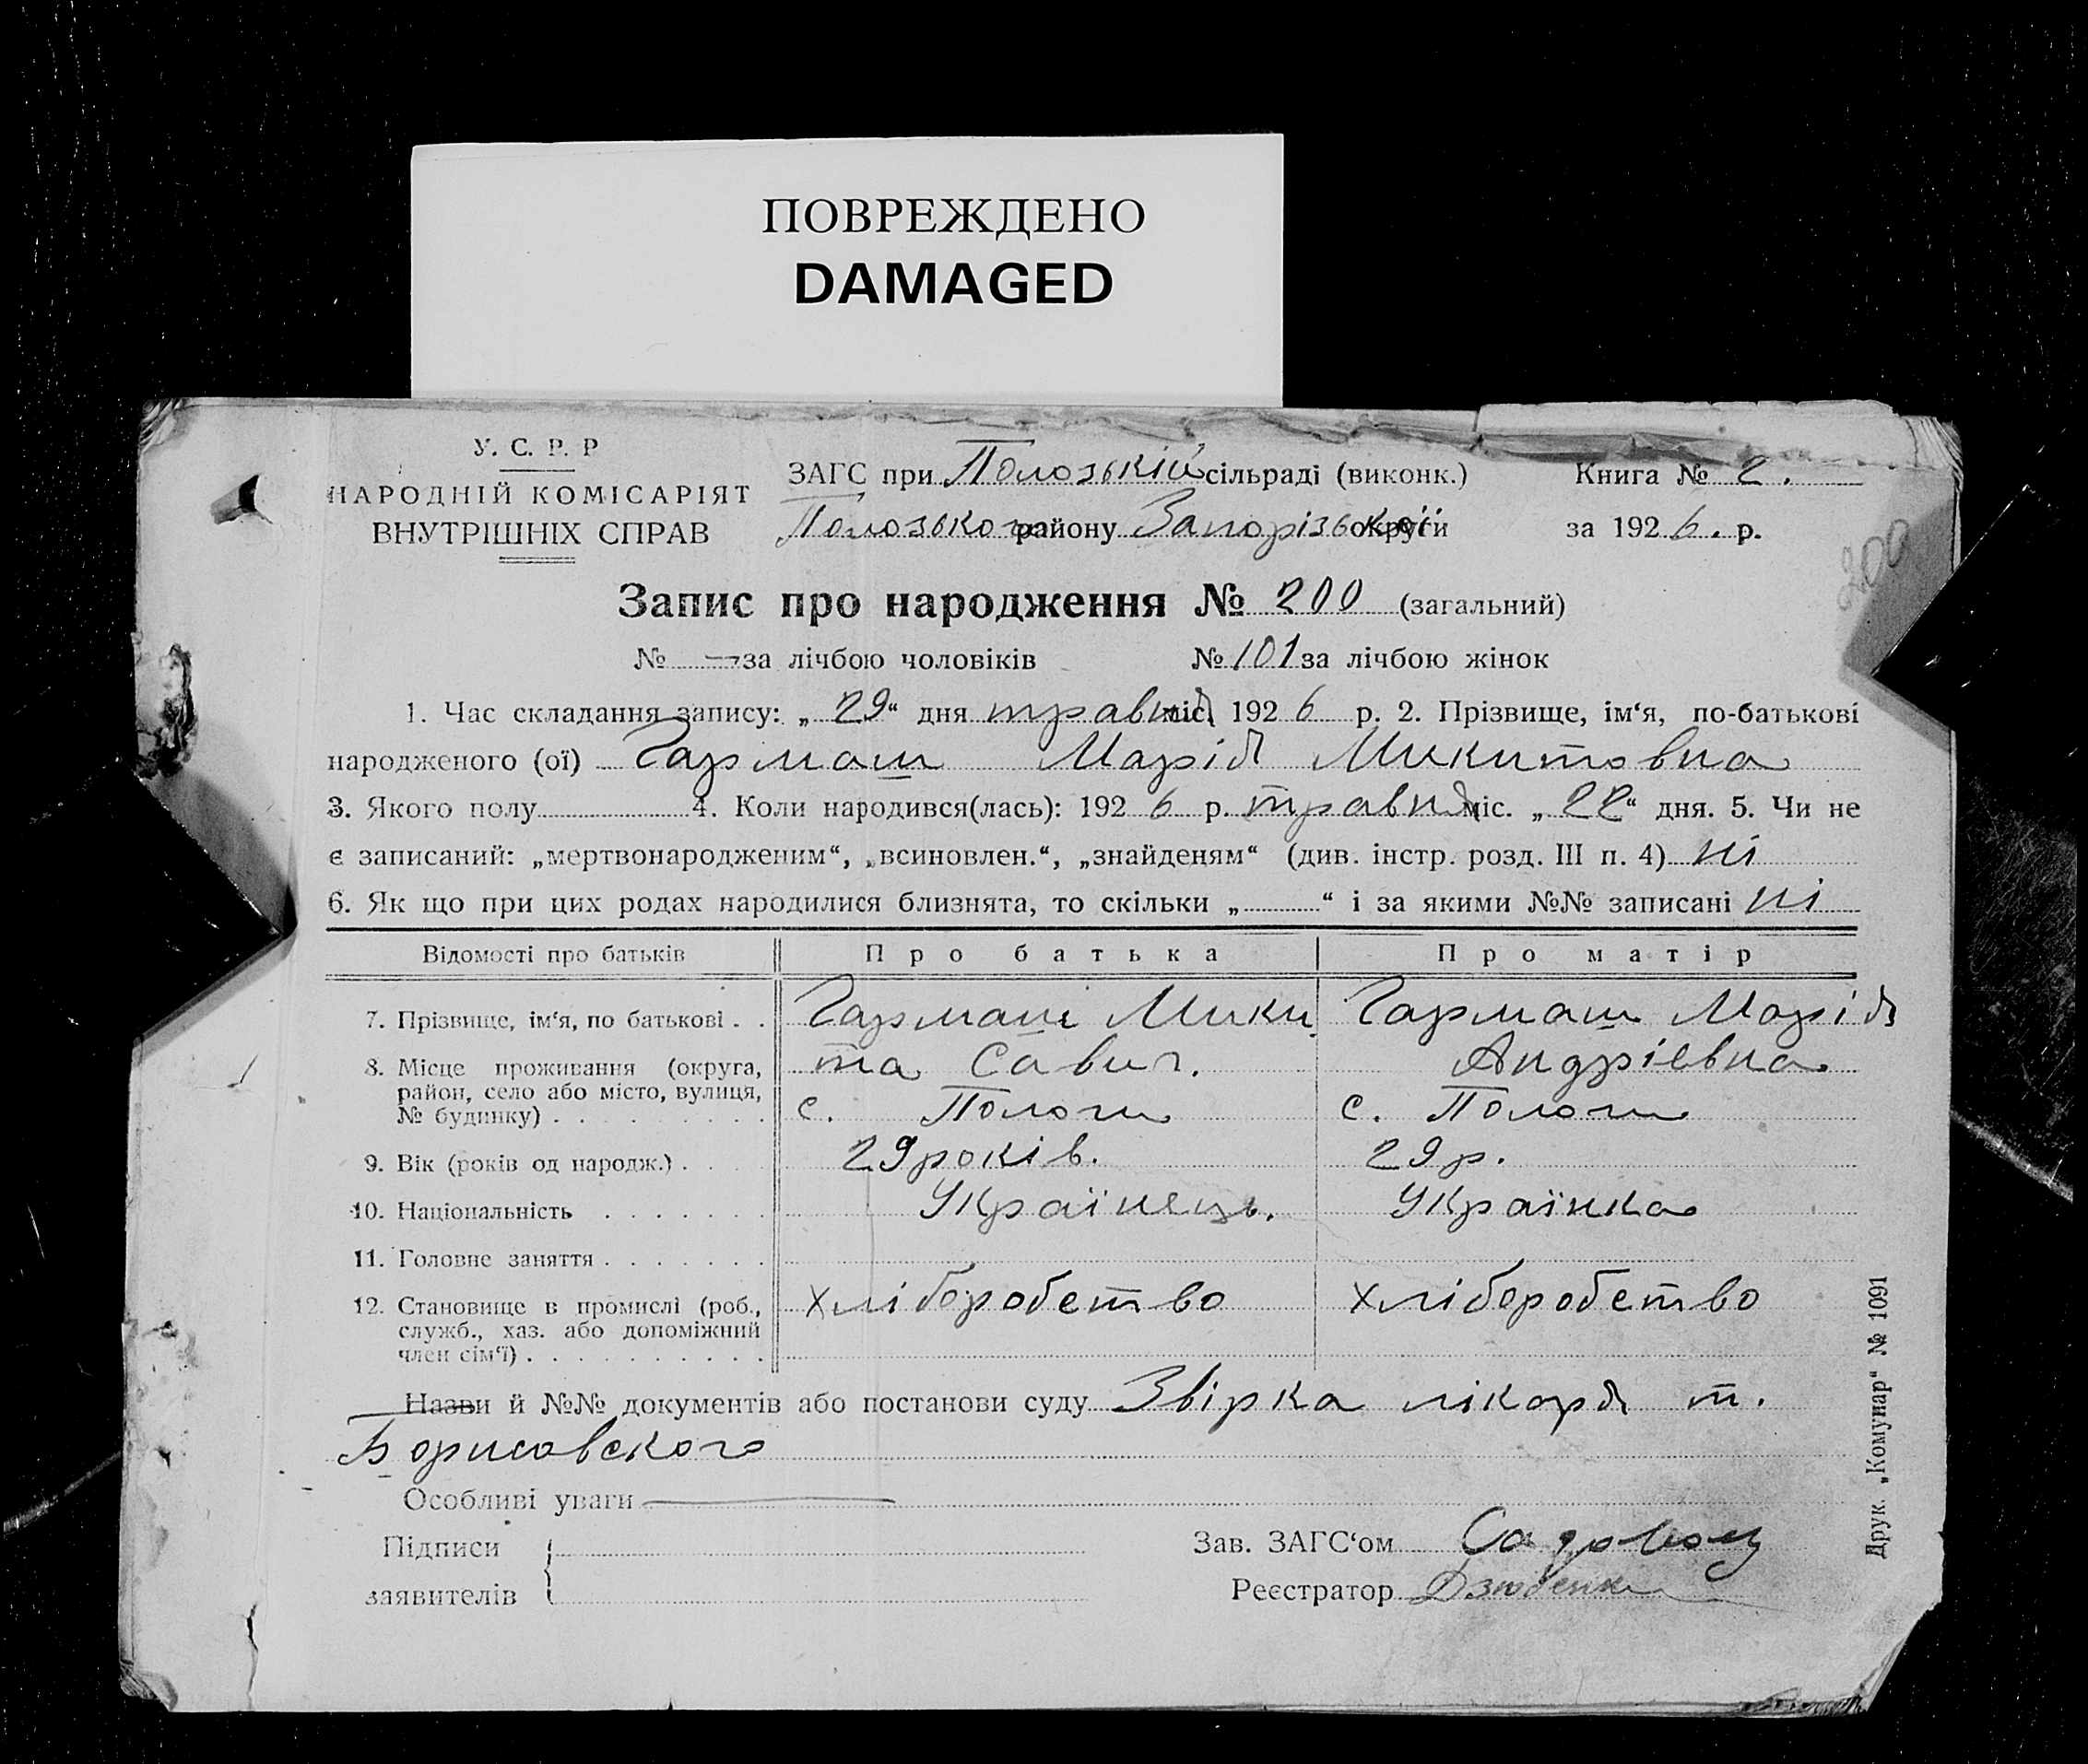 ПОВРЕЖДЕНО
DAMAGED
У. С. Р. Р
НАРОДНІЙ КОМІСАРІЯТ
ВНУТРІШНІХ СПРАВ
ЗАГС при Полозькій сільраді (виконк.)
Полозького району Запорізької округи
Книга № 2.
за 1926. р.
200
Запис про народження № 200 (загальний)
№ — за лічбою чоловіків № 101 за лічбою жінок
1. Час складання запису: „29“ дня травня міс. 1926 р. 2. Прізвище, ім‘я, по-батькові
народженого (ої) Гармаш Марія Микитовна
3. Якого полу 4. Коли народився(лась): 1926 р. травня міс. „22“ дня. 5. Чи не
є записаний: „мертвонародженим“, „всиновлен.“, „знайденям“ (див. інстр. розд. III п. 4) ні
6. Як що при цих родах народилися близнята, то скільки „ “ і за якими №№ записані ні
Відомості про батьків Про батька Про матір
7. Прізвище, ім‘я, по батькові . . Гармаш Мики Гармаш Марія
8. Місце проживання (округа, та Савич. Андріевна
район, село або місто, вулиця,
№ будинку) . . . . . . . . . с. Пологи с. Пологи
9. Вік (років од народж.) . . . 29 років. 29 р.
10. Національність . . . . . . . Українець. Українка
11. Головне заняття . . . . . . .
12. Становище в промислі (роб., хліборобство хліборобство
служб., хаз. або допоміжний
член сім‘ї) . . . . . . . . . .
Назви й №№ документів або постанови суду Звірка лікаря т.
Борисовского
Особливі уваги —
Підписи
заявителів
Зав. ЗАГС‘ом
Реєстратор
Друк. „Комунар“ № 1091